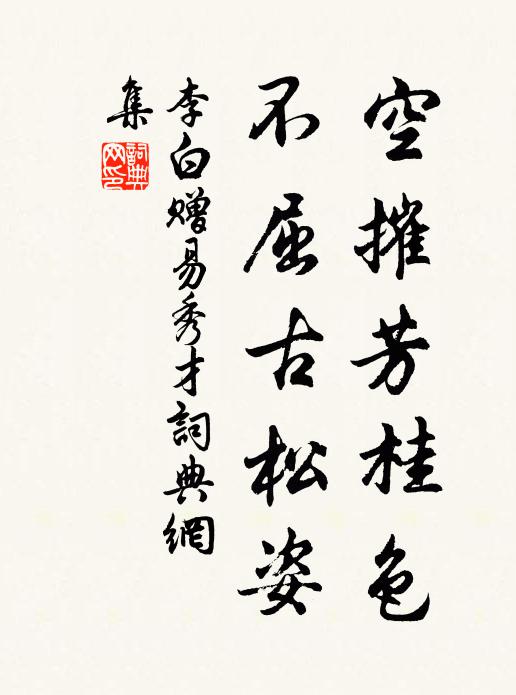 空摧芳桂色
不屈古松姿
李白赠易秀才詞典網
集
詞典
网印